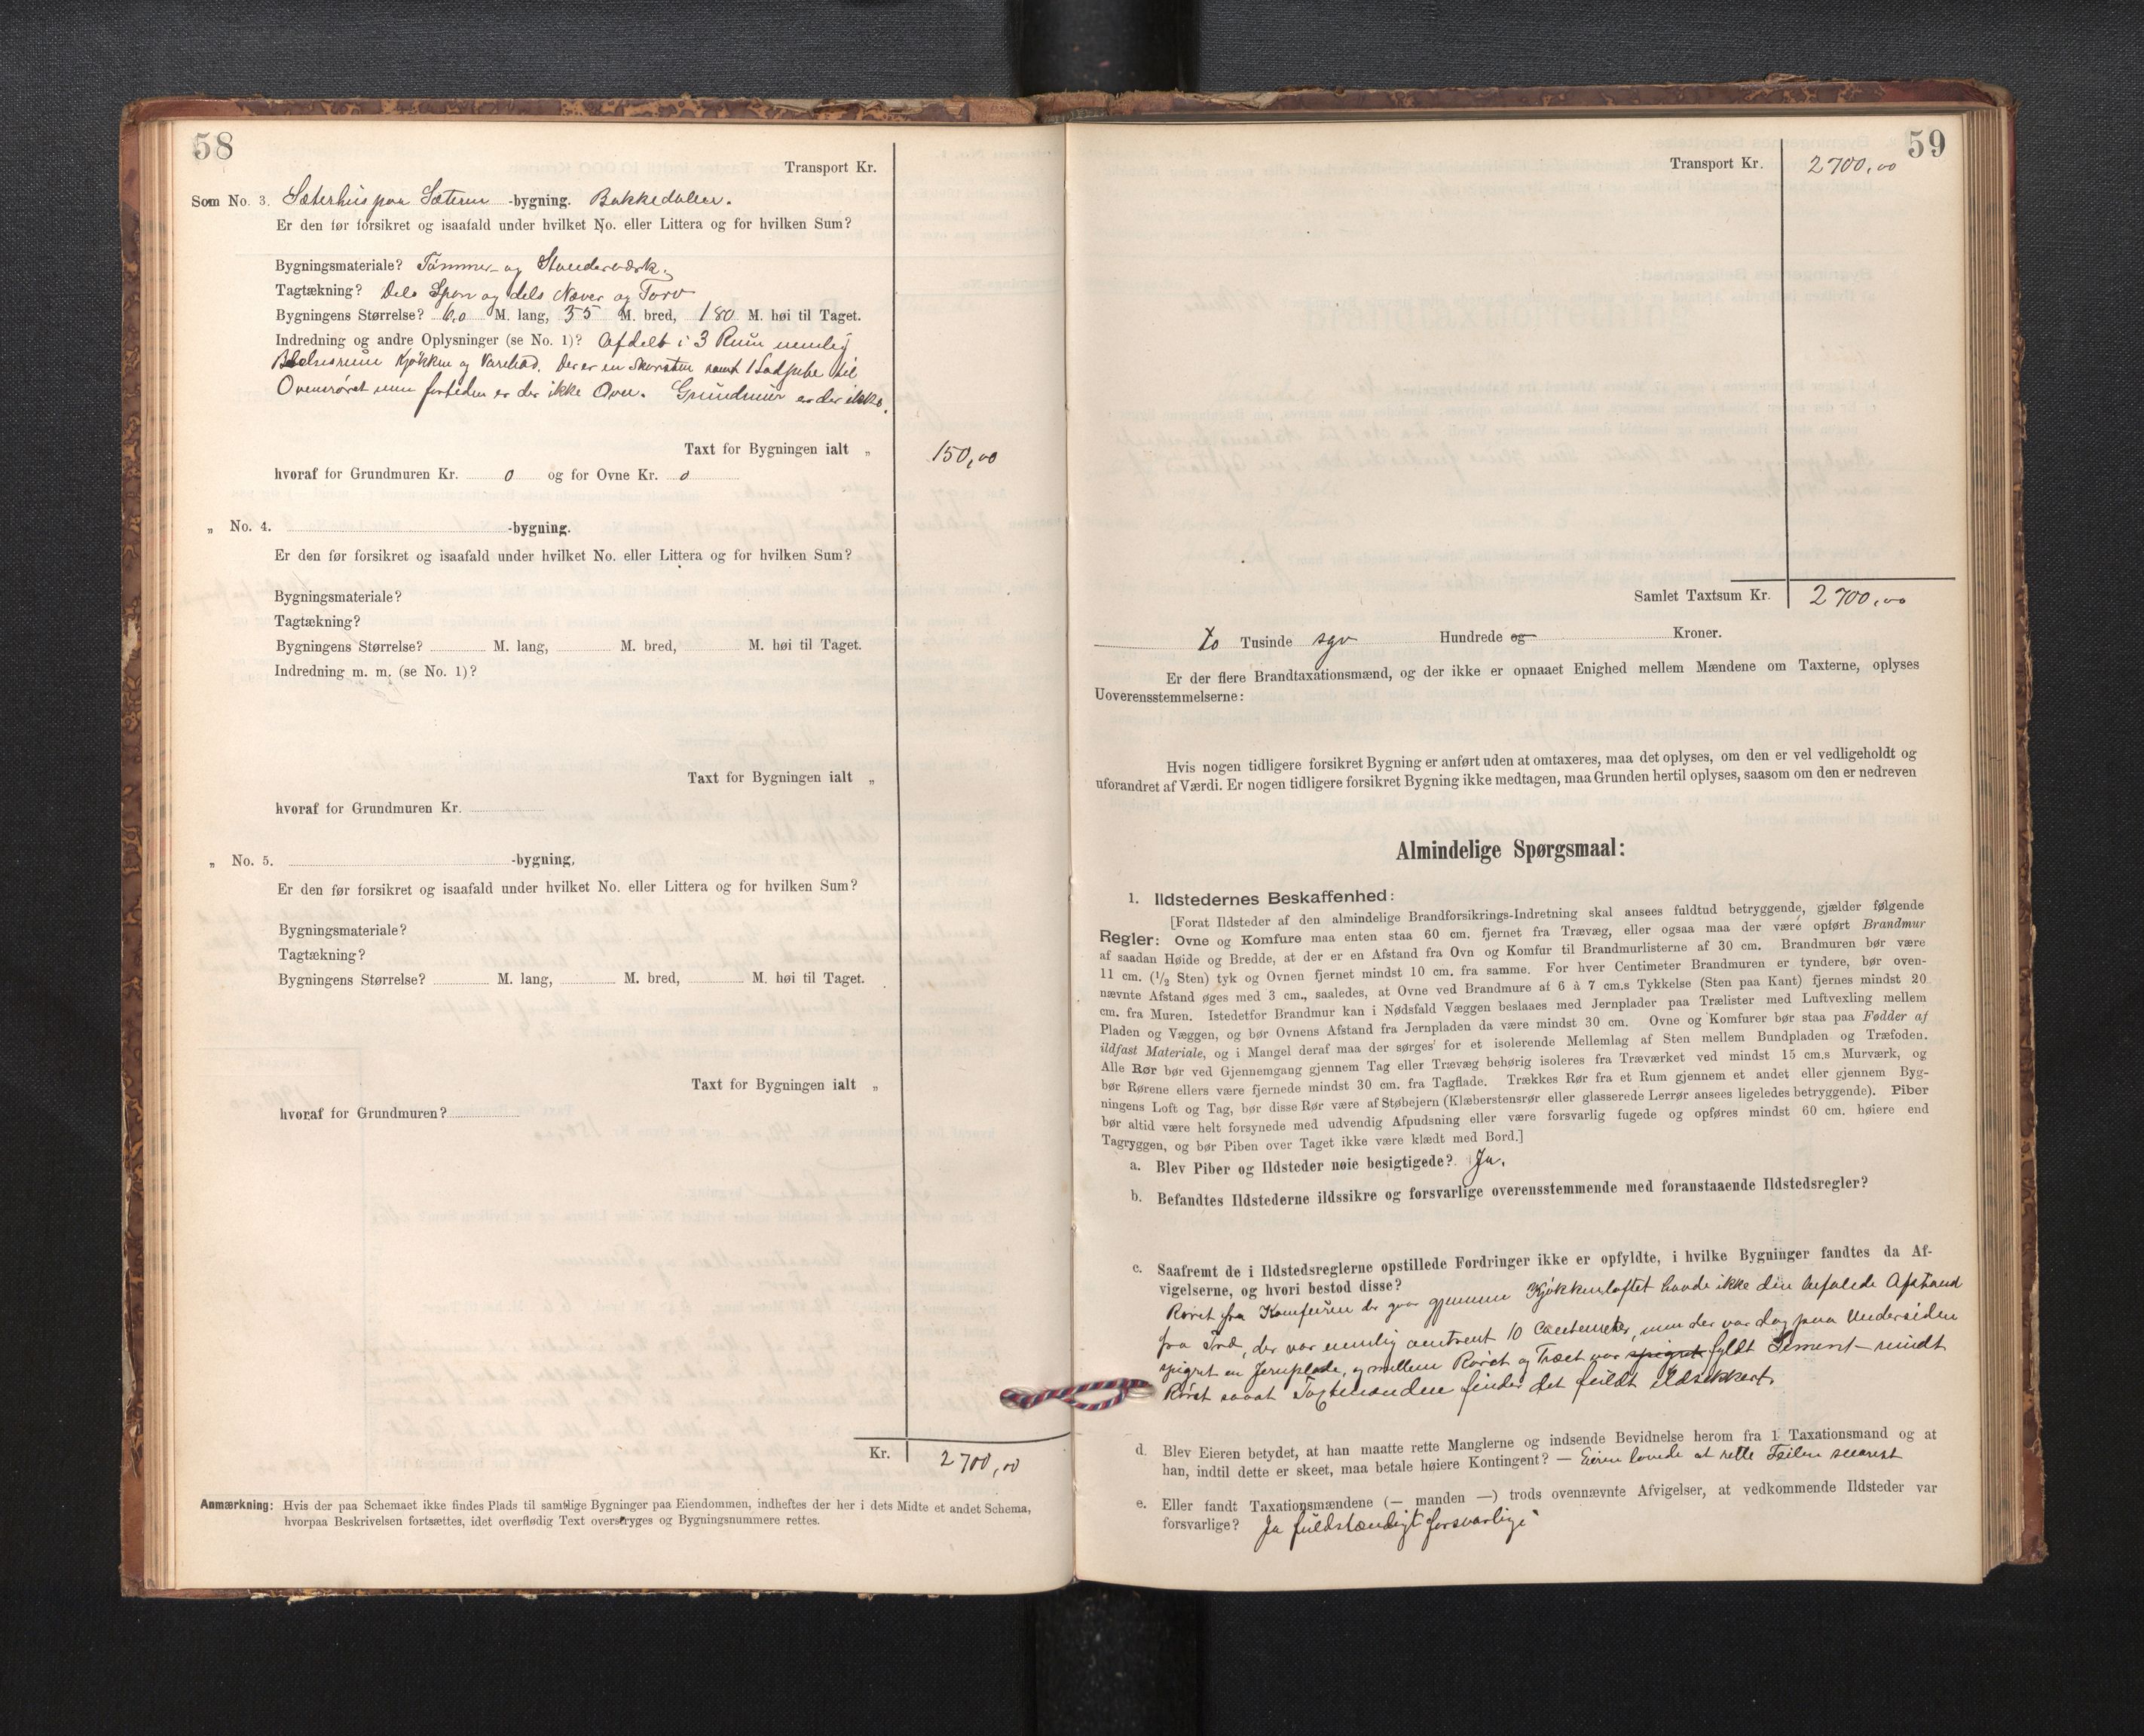 58
Transport Kr.
Som No. 3. Sæterhus paa Sæteren -bygning. Bakkedalen.
Er den før forsikret og isaafald under hvilket No. eller Littera og for hvilken Sum?
Bygningsmateriale? Tømmer- og Stenderværk.
Tagtækning? Dels Spon og dels Næver og Torv
Bygningens Størrelse? 6,0 M. lang, 35 M. bred, 180 M. høi til Taget.
Indredning og andre Oplysninger (se No. 1)? Afdelt i 3 Rum nemlig
Kjøkken og Varebod. Der er en Skorsten samt 1 til
Ovnsrøret men fortiden er der ikke Ovn. Grundmur er der ikke.
Taxt for Bygningen ialt „ 150,00
hvoraf for Grundmuren Kr. 0 og for Ovne Kr. 0
„ No. 4. -bygning.
Er den før forsikret og isaafald under hvilket No. eller Littera og for hvilken Sum?
Bygningsmateriale?
Tagtækning?
Bygningens Størrelse? M. lang, M. bred, M. høi til Taget.
Indredning m. m. (se No. 1)?
Taxt for Bygningen ialt „
hvoraf for Grundmuren Kr.
„ No. 5. -bygning.
Er den før forsikret og isaafald under hvilket No. eller Littera og for hvilken Sum?
Bygningsmateriale?
Tagtækning?
Bygningens Størrelse? M. lang, M. bred, M. høi til Taget.
Taxt for Bygningen ialt „
hvoraf for Grundmuren?
Kr. 2700,00
Anmærkning: Hvis der paa Schemaet ikke findes Plads til samtlige Bygninger paa Eiendommen, indheftes der her i dets Midte et andet Schema,
hvorpaa Beskrivelsen fortsættes, idet overflødig Text overstryges og Bygningsnummere rettes.
59
Transport Kr. 2700,00
Samlet Taxtsum Kr. 2700,00
to Tusinde syv Hundrede og Kroner.
Er der flere Brandtaxationsmænd, og der ikke er opnaaet Enighed mellem Mændene om Taxterne, oplyses
Uoverensstemmelserne:
Hvis nogen tidligere forsikret Bygning er anført uden at omtaxeres, maa det oplyses, om den er vel vedligeholdt og
uforandret af Værdi. Er nogen tidligere forsikret Bygning ikke medtagen, maa Grunden hertil oplyses, saasom om den er nedreven
Almindelige Spørgsmaal:
1. Ildstedernes Beskaffenhed:
[Forat Ildsteder af den almindelige Brandforsikrings-Indretning skal ansees fuldtud betryggende, gjælder følgende
Regler: Ovne og Komfure maa enten staa 60 cm. fjernet fra Trævæg, eller ogsaa maa der være opført Brandmur
af saadan Høide og Bredde, at der er en Afstand fra Ovn og Komfur til Brandmurlisterne af 30 cm. Brandmuren bør være
11 cm. (1/2 Sten) tyk og Ovnen fjernet mindst 10 cm. fra samme. For hver Centimeter Brandmuren er tyndere, bør oven-
nævnte Afstand øges med 3 cm., saaledes, at Ovne ved Brandmure af 6 à 7 cm.s Tykkelse (Sten paa Kant) fjernes mindst 20
cm. fra Muren. Istedetfor Brandmur kan i Nødsfald Væggen beslaaes med Jernplader paa Trælister med Luftvexling mellem
Pladen og Væggen, og bør Ovnens Afstand fra Jernpladen da være mindst 30 cm. Ovne og Komfurer bør staa paa Fødder af
ildfast Materiale, og i Mangel deraf maa der sørges for et isolerende Mellemlag af Sten mellem Bundpladen og Træfoden.
Alle Rør bør ved Gjennemgang gjennem Tag eller Trævæg behørig isoleres fra Træværket ved mindst 15 cm.s Murværk, og
bør Rørene ellers være fjernede mindst 30 cm. fra Tagflade. Trækkes Rør fra et Rum gjennem et andet eller gjennem Byg-
ningens Loft og Tag, bør disse Rør være af Støbejern (Klæberstensrør eller glasserede Lerrør ansees ligeledes betryggende). Piber
bør altid være helt forsynede med udvendig Afpudsning eller være forsvarlig fugede og opføres mindst 60 cm. høiere end
Tagryggen, og bør Piben over Taget ikke være klædt med Bord.]
a. Blev Piber og Ildsteder nøie besigtigede? Ja.
b. Befandtes Ildstederne ildssikre og forsvarlige overensstemmende med foranstaaende Ildstedsregler?
c. Saafremt de i Ildstedsreglerne opstillede Fordringer ikke er opfyldte, i hvilke Bygninger fandtes da Af-
vigelserne, og hvori bestod disse?
Røret fra Komfuren der gaar gjennem Kjøkkenloftet havde ikke den befalede Afstand
fra Træ, der var nemlig omtrent 10 Centemeter, men der var dog paa Undersiden
spigret en Jernplade, og mellem Røret og Træet var spigret fyldt Sement rundt
Røret saaat Taxtmanden finder det fuldt ildsikkert.
d. Blev Eieren betydet, at han maatte rette Manglerne og indsende Bevidnelse herom fra 1 Taxationsmand og at
han, indtil dette er skeet, maa betale høiere Kontingent? — Eieren lovede at rette Feilen snarest
e. Eller fandt Taxationsmændene (— manden —) trods ovennævnte Afvigelser, at vedkommende Ildsteder var
forsvarlige? Ja fuldstændigt forsvarlige